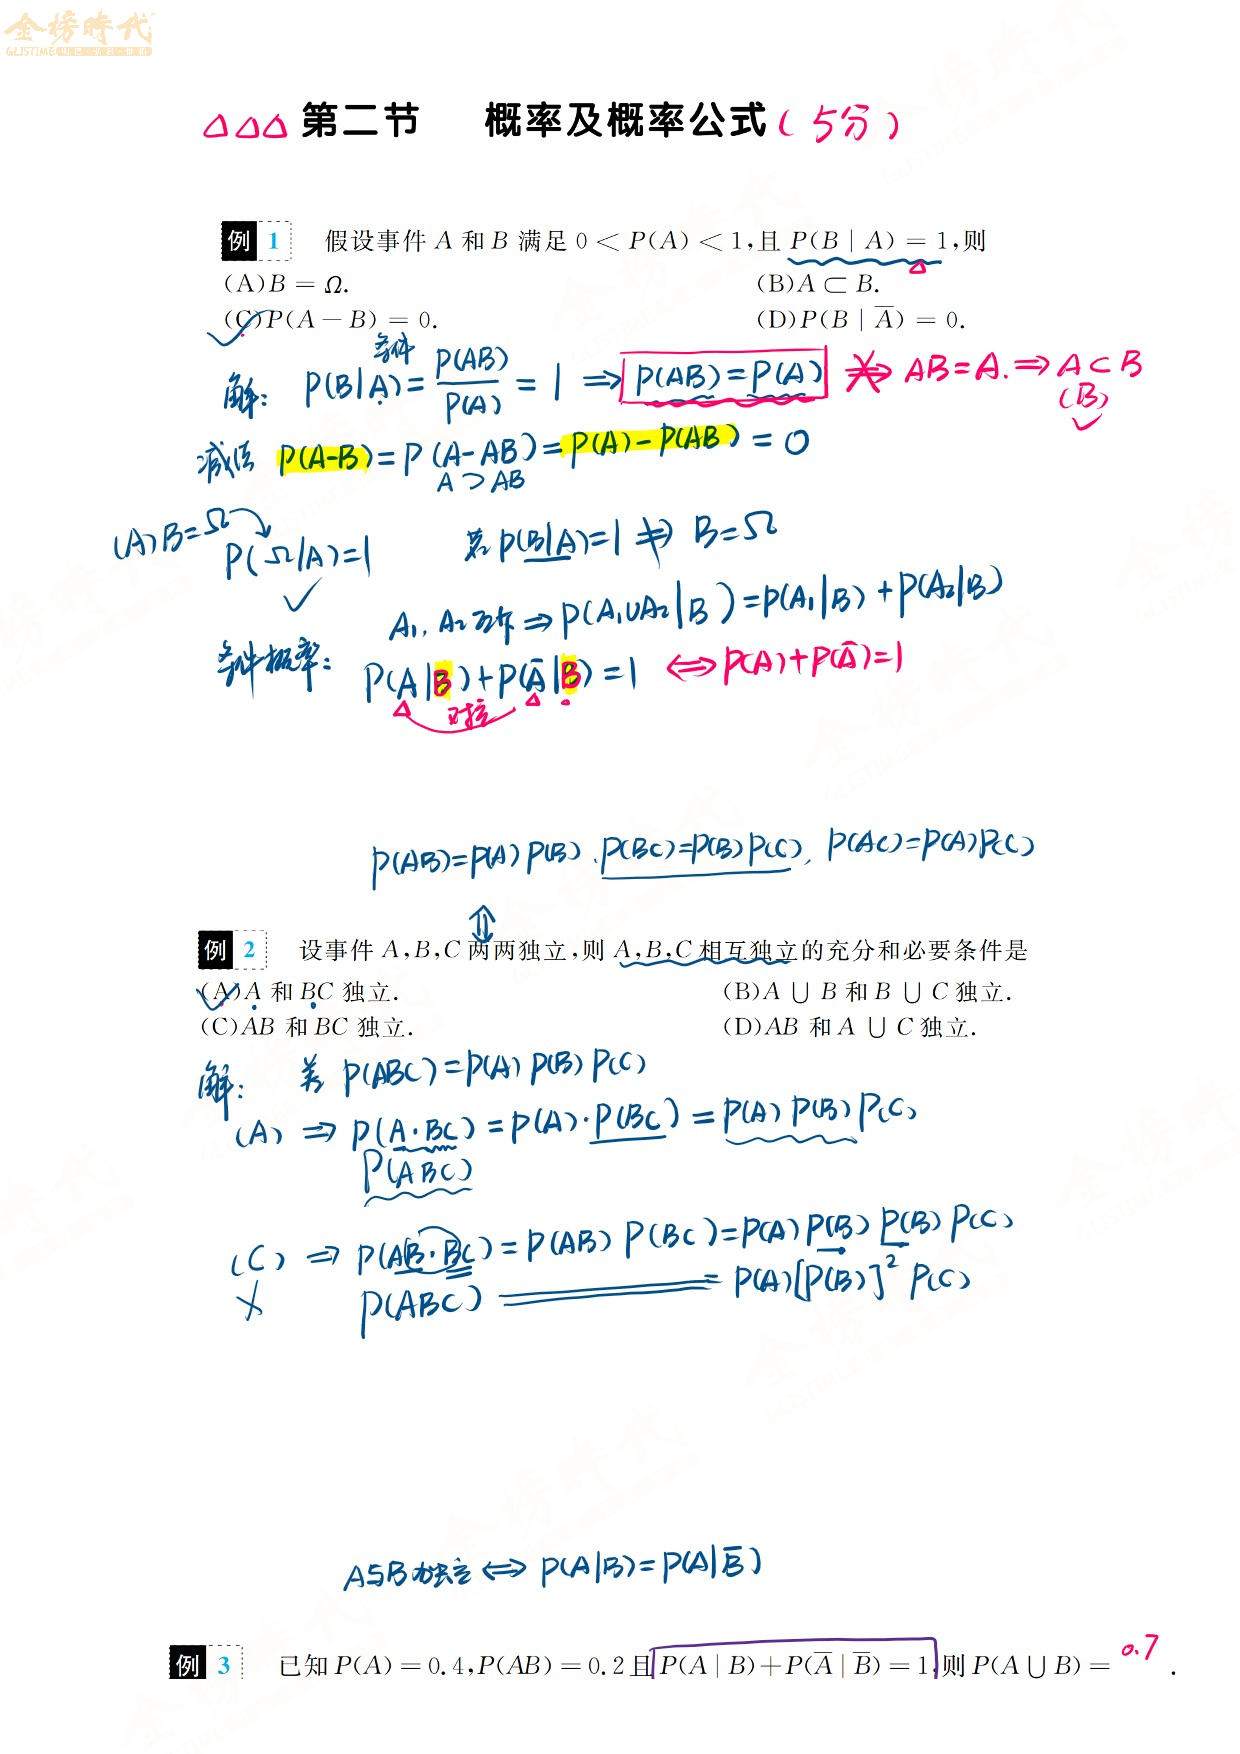 金榜時代
GLISTIME
△△△ 第二节 概率及概率公式(5分)
例 1 假设事件 A 和 B 满足 0 < P(A) < 1,且 P(B | A) = 1,则
(A)B = Ω. (B)A ⊂ B.
✓(C)P(A − B) = 0. (D)P(B | A̅) = 0.
条件
解: P(B|A) = P(AB)/P(A) = 1 ⇒ P(AB)=P(A) ⇏ AB=A. ⇒ A⊂B
(B)✓
减法 P(A-B)=P(A-AB)=P(A)-P(AB)=0
A⊃AB
(A) B=Ω P(Ω|A)=1 ✓ 若P(B|A)=1 ⇏ B=Ω
A₁, A₂ 互斥 ⇒ P(A₁∪A₂|B)=P(A₁|B)+P(A₂|B)
条件概率: P(A|B)+P(A̅|B)=1 ⇔ P(A)+P(A̅)=1
△ 对立 △
P(AB)=P(A)P(B), P(BC)=P(B)P(C), P(AC)=P(A)P(C)
⇕
例 2 设事件 A,B,C 两两独立,则 A,B,C 相互独立的充分和必要条件是
✓(A)A 和 BC 独立. (B)A ∪ B 和 B ∪ C 独立.
(C)AB 和 BC 独立. (D)AB 和 A ∪ C 独立.
解: 差 P(ABC)=P(A)P(B)P(C)
(A) ⇒ P(A·BC)=P(A)·P(BC)=P(A)P(B)P(C)
P(ABC)
(C) ⇒ P(AB·BC)=P(AB)P(BC)=P(A)P(B)P(B)P(C)
× P(ABC) = P(A)[P(B)]²P(C)
A与B独立 ⇔ P(A|B)=P(A|B̅)
例 3 已知 P(A) = 0.4,P(AB) = 0.2 且 P(A | B)+P(A̅ | B̅) = 1,则 P(A ∪ B) = 0.7 .